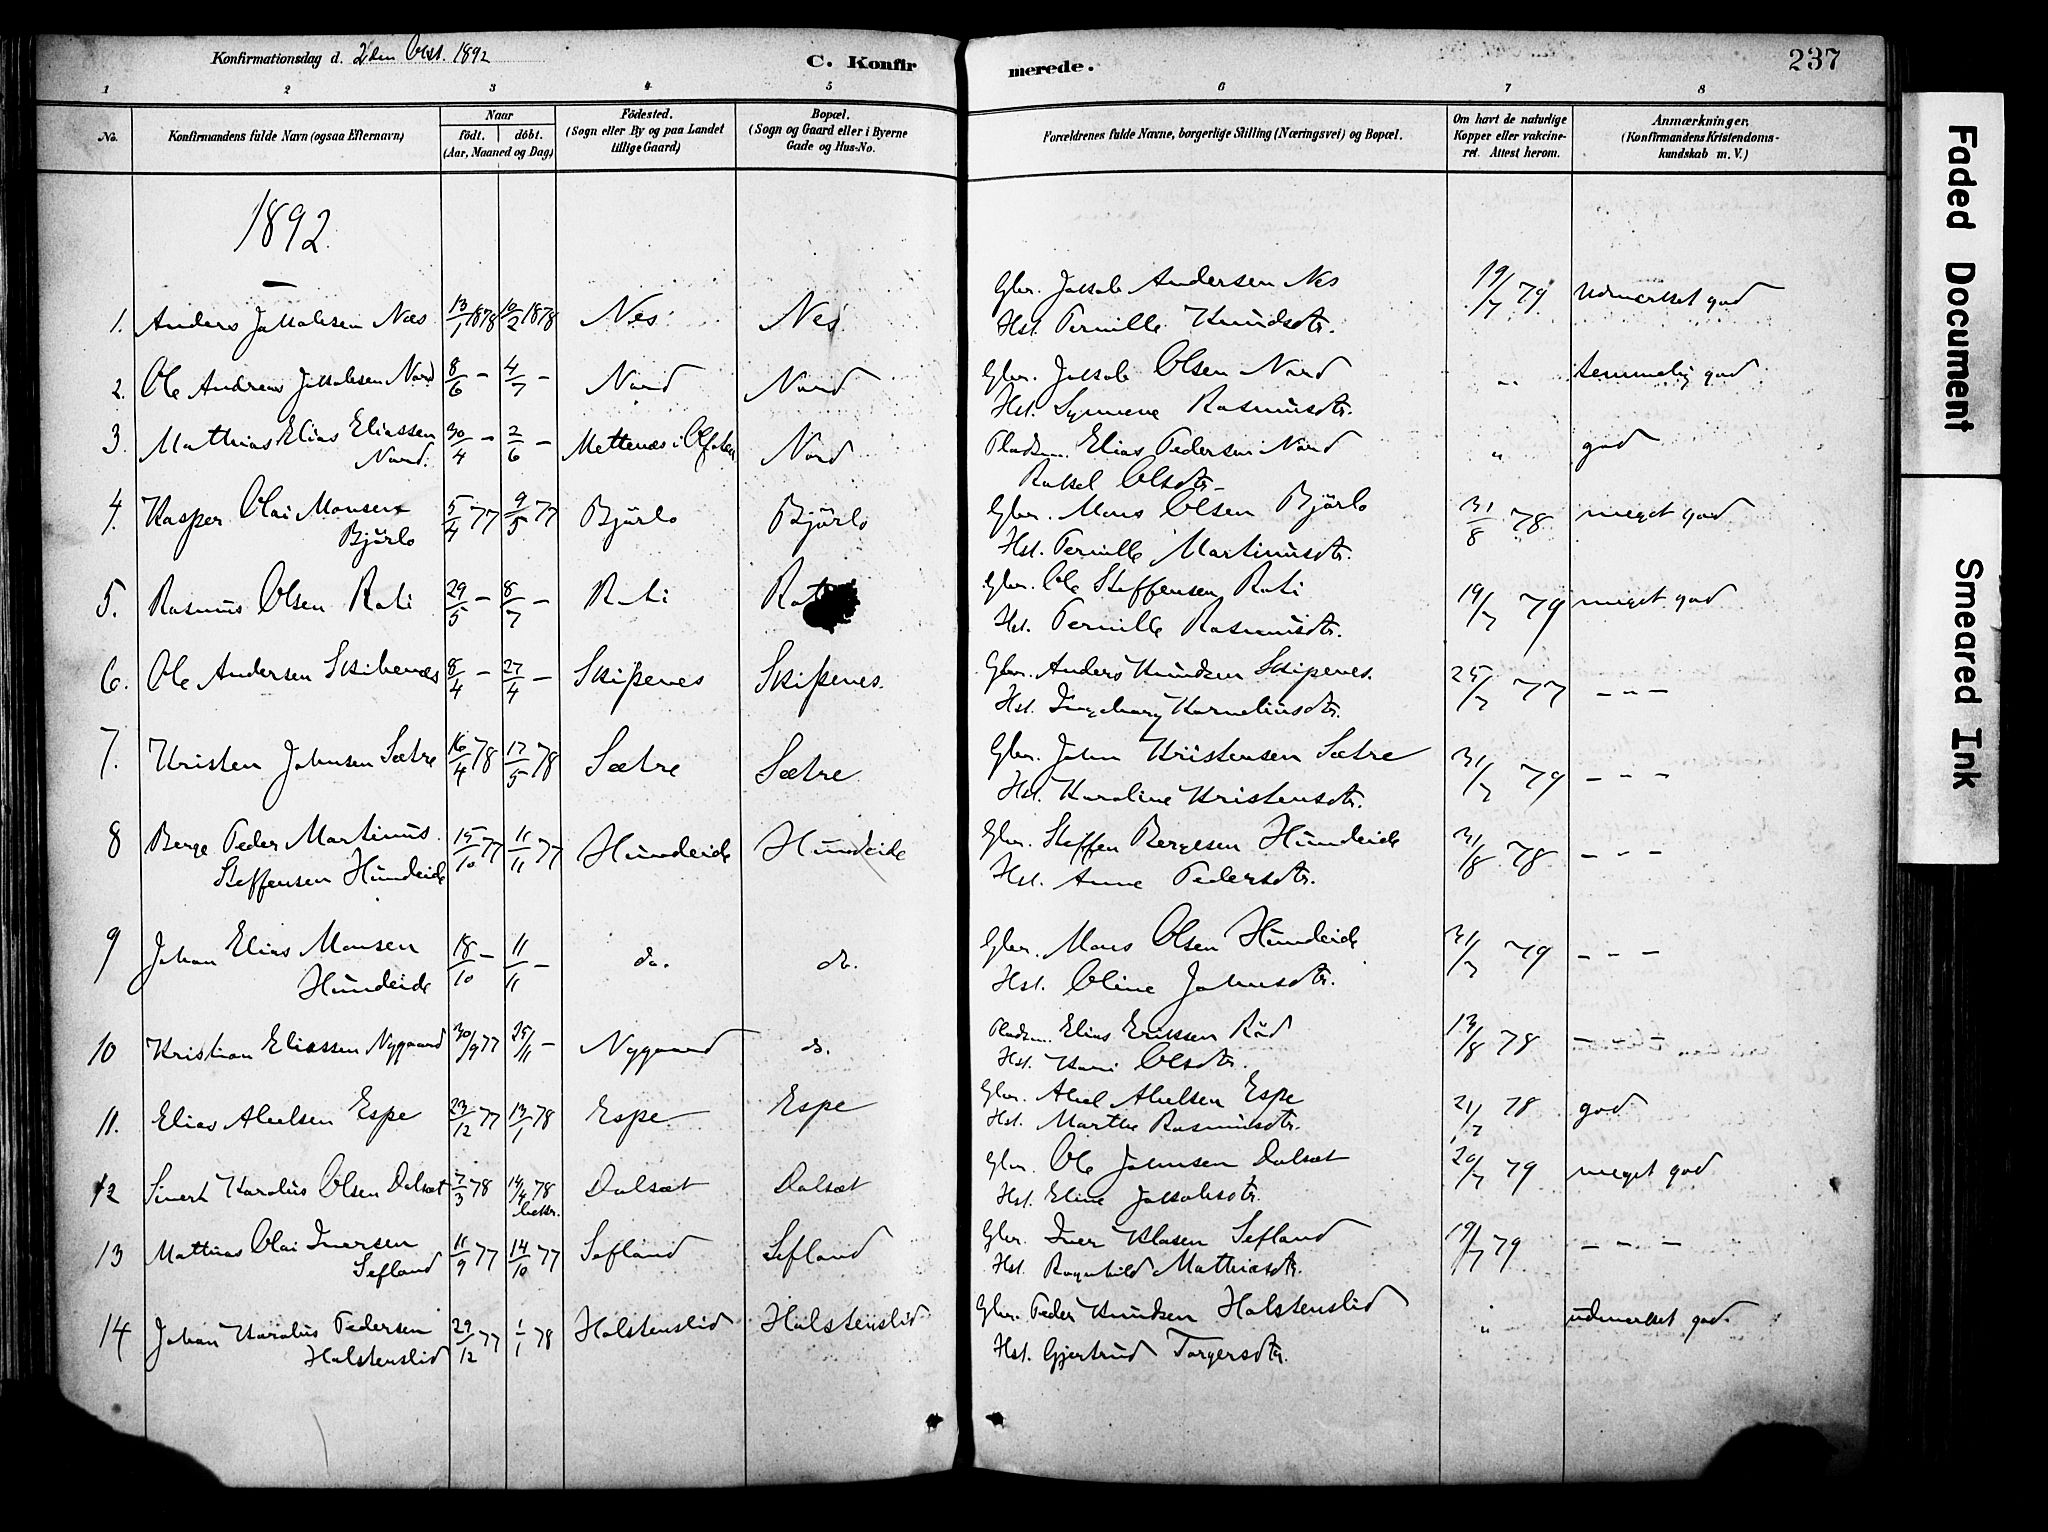 Konfirmationsdag d. 2den Okt. 1892
C. Konfirmerede.
237
1 2 3 4 5 6 7 8
No.
Konfirmandens fulde Navn (ogsaa Efternavn)
Naar
födt. döbt.
(Aar, Maaned og Dag)
Födested.
(Sogn eller By og paa Landet
tillige Gaard)
Bopæl.
(Sogn og Gaard eller i Byerne
Gade og Hus-No.
Forældrenes fulde Navne, borgerlige Stilling (Næringsvei) og Bopæl.
Om havt de naturlige
Kopper eller vakcine-
ret. Attest herom.
Anmærkninger.
(Konfirmandens Kristendoms-
kundskab m. V.)
1892
1. Anders Jakobsen Næs 13/1 1878 10/2 1878 Nes Nes Gbr. Jakob Andersen Nes 19/7 79 Udmerket god
Hst. Pernille Knudsdtr.
2. Ole Andreas Jakobsen Nord 8/6 – 4/7 – Nord Nord Gbr. Jakob Olsen Nord " temmelig god
Hst. Synneve Rasmusdtr.
3. Mathias Elias Eliassen 30/4 – 2/6 – Mettenæs i Nord Pladsm. Elias Pedersen Nord " god
Nord. Rakel Olsdtr
4. Kasper Olai Monsen 5/4 77 9/5 77 Bjørlo Bjørlo Gbr. Mons Olsen Bjørlo 31/8 78 meget god
Bjørlo Hst. Pernille Martinusdtr.
5. Rasmus Olsen Roti 29/5 – 8/7 – Roti Gbr. Ole Steffensen Roti 19/7 79 meget god
Hst. Pernille Rasmusdtr.
6. Ole Andersen Skibenæs 8/4 – 27/4 – Skipenes Skipenes. Gbr. Anders Knudsen Skipenes. 25/7 77 – " –
Hst. Ingeborg Korneliusdtr.
7. Kristen Johnsen Sætre 16/4 78 17/5 78 Sætre Sætre Gbr. John Kristensen Sætre 31/7 79 – " –
Hst. Karoline Kristensdtr.
8 Berge Peder Martinus 15/10 77 11/11 77 Hundeide Hundeide Gbr. Steffen Bergesen Hundeide 31/8 78 – " –
Steffensen Hundeide Hst. Anne Pedersdtr.
9 Johan Elias Monsen 18/10 – 11/11 – do. do. Gbr. Mons Olsen Hundeide 31/7 79 – " –
Hundeide Hst. Oline Johnsdtr.
10 Kristian Eliassen Nygaard 30/9 77 25/11 – Nygaard do. Pladsm. Elias Erikssen Rød 13/8 78 – " –
Hst. Kari Olsdtr.
11. Elias Abelsen Espe 23/12 77 13/1 78 Espe Espe Gbr. Abel Abelsen Espe 21/7 78 god
Hst. Marthe Rasmusdtr.
12 Sivert Karolus Olsen Dalsæt 7/3 78 14/4 78 Dalsæt Dalsæt Gbr. Ole Johnsen Dalsæt 20/7 79 meget god
Hst. Eline Jakobsdtr.
13 Mathias Olai Iversen 11/9 77 14/10 77 Sefland Sefland Gbr. Iver Klasen Sefland 19/7 79 – " –
Sefland Hst. Ragnhild Mathiasdtr.
14 Johan Karolus Pedersen 29/12 77 1/1 78 Holstenslid Holstenslid Gbr. Peder Knudsen Holstenslid " udmerket god.
Holstenslid Hst. Gjertrud Torgersdtr.
Faded Document
Smeared Ink